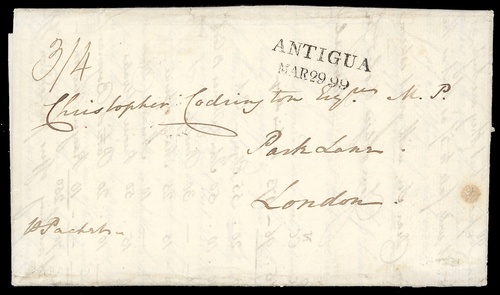 3/4
ANTIGUA
MAR 29 99
Christopher Codrington Esqr. M.P.
Park Lane
London
Packet